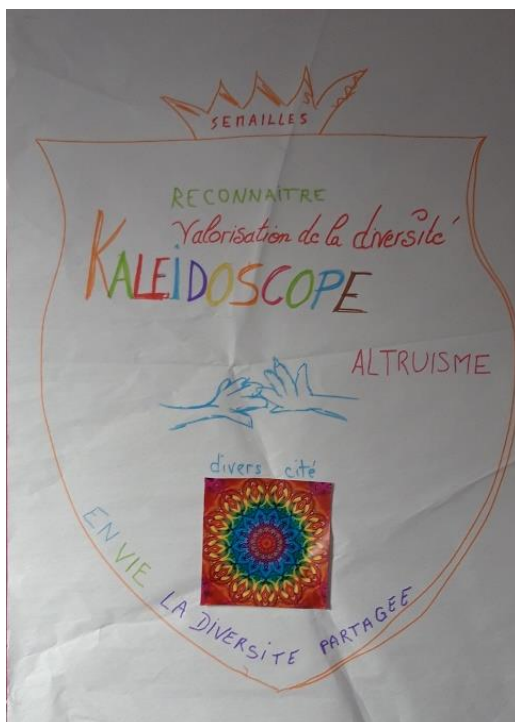 SEMAILLES
RECONNAITRE
Valorisation de la diversité
KALEIDOSCOPE
ALTRUISME
divers cité
EN VIE LA DIVERSITE PARTAGEE